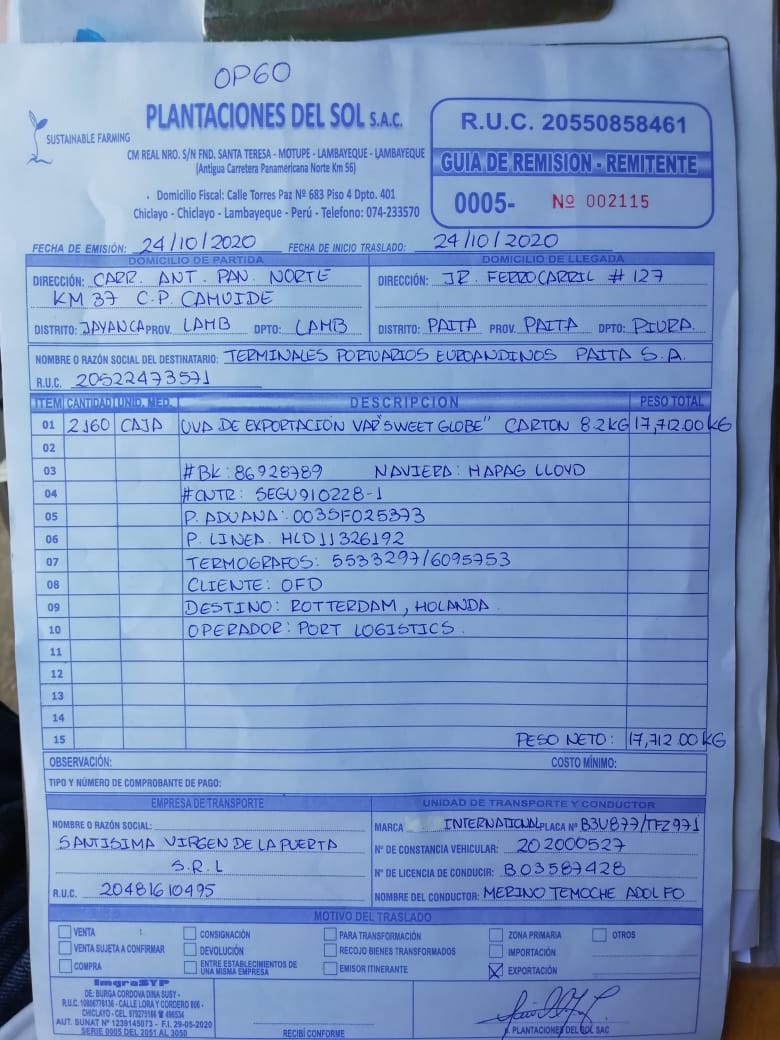 OP60
SUSTAINABLE FARMING
PLANTACIONES DEL SOL S.A.C.
CM REAL NRO. S/N FND. SANTA TERESA - MOTUPE - LAMBAYEQUE - LAMBAYEQUE
(Antigua Carretera Panamericana Norte Km 56)
Domicilio Fiscal: Calle Torres Paz Nº 683 Piso 4 Dpto. 401
Chiclayo - Chiclayo - Lambayeque - Perú - Telefono: 074-233570
R.U.C. 20550858461
GUIA DE REMISION - REMITENTE
0005- Nº 002115
FECHA DE EMISIÓN: 24/10/2020 FECHA DE INICIO TRASLADO: 24/10/2020
DOMICILIO DE PARTIDA
DIRECCIÓN: CARR. ANT. PAN. NORTE
KM 37 C.P. CAMUIDE
DISTRITO: JAYANCA PROV. LAMB DPTO: LAMB
DOMICILIO DE LLEGADA
DIRECCIÓN: JR. FERROCARRIL # 127
DISTRITO: PAITA PROV. PAITA DPTO: PIURA.
NOMBRE O RAZÓN SOCIAL DEL DESTINATARIO: TERMINALES PORTUARIOS EUROANDINOS PAITA S.A.
R.U.C. 20522473571
ITEM CANTIDAD UNID. MED. DESCRIPCION PESO TOTAL
01 2160 CAJA UVA DE EXPORTACIÓN VAR "SWEET GLOBE" CARTON 8.2KG 17,712.00KG
02
03 #BK: 86928789 NAVIERA: HAPAG LLOYD
04 #CNTR: SEGU910228-1
05 P. ADUANA: 0035F025373
06 P. LINEA. HLD11326192
07 TERMOGRAFOS: 5533297/6095753
08 CLIENTE: OFD
09 DESTINO: ROTTERDAM, HOLANDA.
10 OPERADOR: PORT LOGISTICS.
11
12
13
14
15 PESO NETO: 17,712.00KG
OBSERVACIÓN: COSTO MÍNIMO:
TIPO Y NÚMERO DE COMPROBANTE DE PAGO:
EMPRESA DE TRANSPORTE
NOMBRE O RAZÓN SOCIAL:
SANTISIMA VIRGEN DE LA PUERTA
S.R.L
R.U.C. 20481610495
UNIDAD DE TRANSPORTE Y CONDUCTOR
MARCA INTERNATIONAL PLACA Nº B3U877/TFZ971
Nº DE CONSTANCIA VEHICULAR: 202000527
Nº DE LICENCIA DE CONDUCIR: B03587428
NOMBRE DEL CONDUCTOR: MERINO TEMOCHE ADOLFO
MOTIVO DEL TRASLADO
VENTA
VENTA SUJETA A CONFIRMAR
COMPRA
CONSIGNACIÓN
DEVOLUCIÓN
ENTRE ESTABLECIMIENTOS DE
UNA MISMA EMPRESA
PARA TRANSFORMACIÓN
RECOJO BIENES TRANSFORMADOS
EMISOR ITINERANTE
ZONA PRIMARIA
IMPORTACIÓN
X EXPORTACIÓN
OTROS
ImgraSYP
DE: BURGA CORDOVA DINA SUSY -
R.U.C. 10806776136 - CALLE LORA Y CORDERO 806 -
CHICLAYO - CEL. 979275186 ☎ 496534
AUT. SUNAT Nº 1239145073 - F.I. 29-05-2020
SERIE 0005 DEL 2051 AL 3050
RECIBÍ CONFORME
p. PLANTACIONES DEL SOL SAC